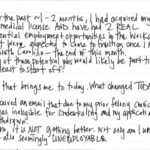 the past ~1-2 months, I had acquired my
medical license AND have had 2 REAL
ential employment opportunities in the works
t were to transition once I
South Carolina - the end of this month.
of these potential jobs would likely be part-time
least to start off.
that brings me to today. What changed TODAY
eceived an email that due to my prior felony convic
was ineligible for credentialing and my application
thdrawn!
n, it is NOT getting better. Not only am I
also seemingly UNEMPLOYABLE